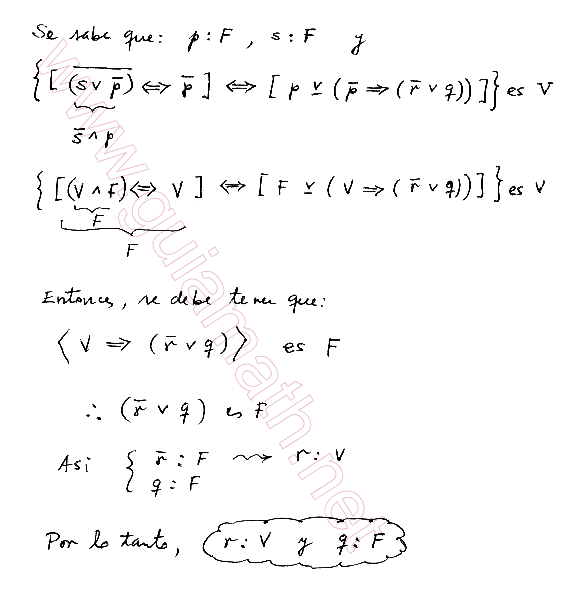 Se sabe que: p : F , s : F y
{[ \overline{(s ∨ \overline{p})} ⇔ \overline{p} ] ⇔ [ p \underline{∨} ( \overline{p} ⇒ ( \overline{r} ∨ q)) ]} es V
\overline{s} ∧ p
{[(V ∧ F) ⇔ V ] ⇔ [ F \underline{∨} ( V ⇒ ( \overline{r} ∨ q)) ]} es V
F
F
Entonces, se debe tener que:
⟨ V ⇒ ( \overline{r} ∨ q) ⟩ es F
∴ ( \overline{r} ∨ q ) es F
Asi { \overline{r} : F ⇝ r : V
q : F
Por lo tanto, r : V y q : F
www.guiamath.net